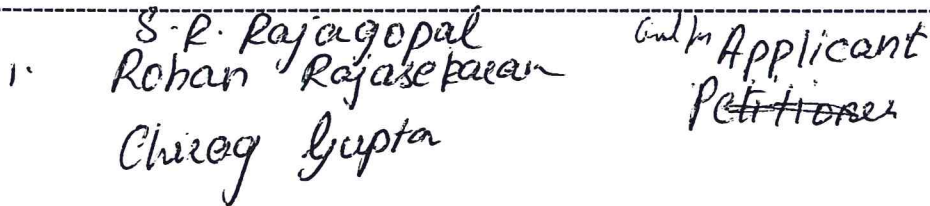 S.R. Rajagopal
1. Rohan Rajasekaran
Chirag Gupta
Applicant
Petitioner